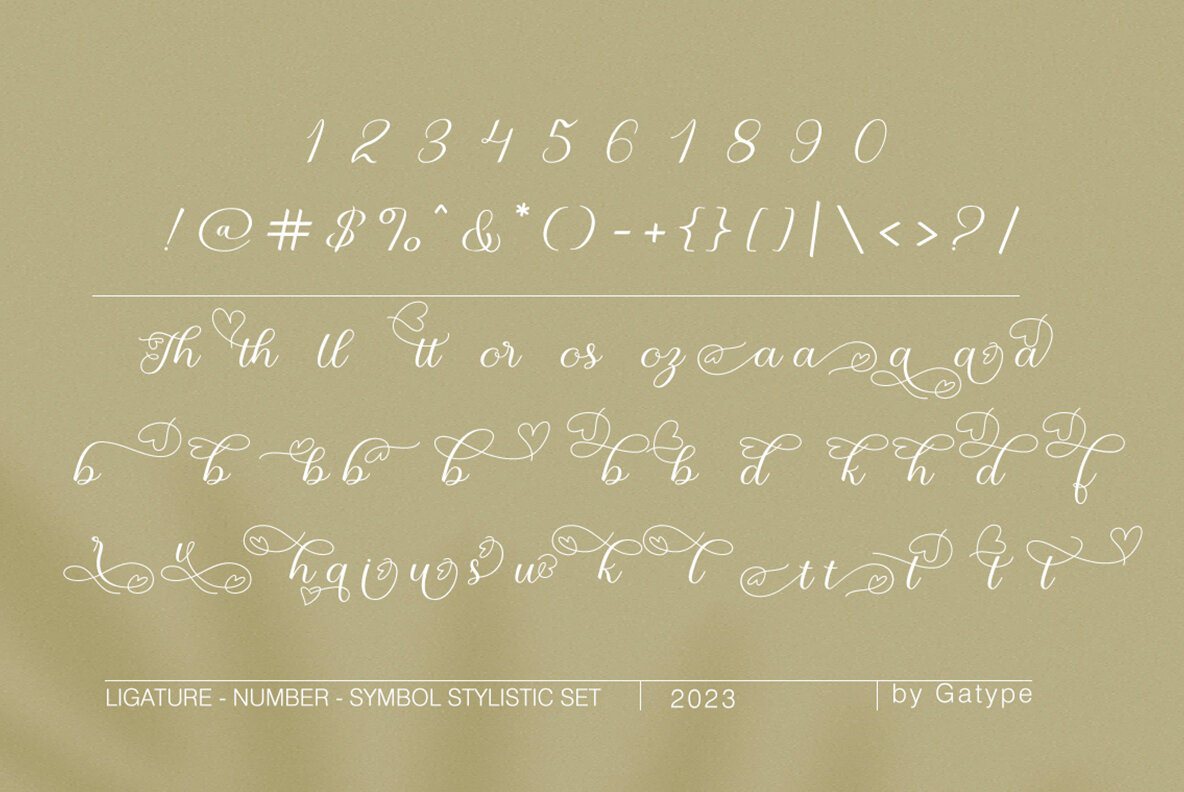 1 2 3 4 5 6 1 8 9 0
! @ # $ % ^ & * ( ) - + { } [ ] | \ < > ? /
Th th ll tt or os oz a a a a a a
b b b b b b b d k h d f
r v h q i y s w k l t t t t t
LIGATURE - NUMBER - SYMBOL STYLISTIC SET 2023 by Gatype